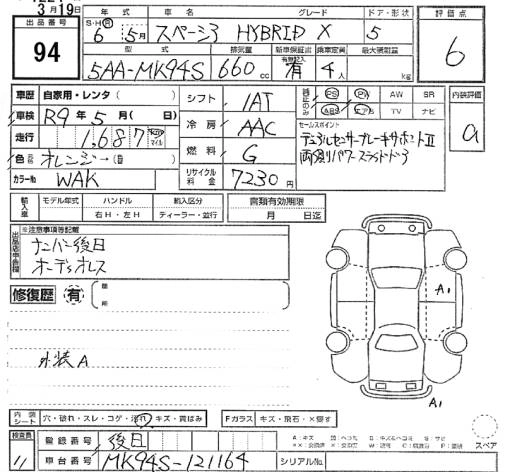 3月19日
出品番号
94
年式 車名 グレード ドア・形状
S・H・R 6年 5月 スペーシア HYBRID X 5
型式 排気量 新車保証書 乗車定員 最大積載量
5AA-MK94S 660cc 有 4人 kg
評価点
6
車歴 自家用・レンタ
車検 R9年5月( 日)
走行 1,687 km マイル
色 オレンジ→
カラーNo WAK
シフト IAT
冷房 AAC
燃料 G
リサイクル料金 7230円
PS PW AW SR
ABS エアB TV ナビ
セールスポイント
デュアルセンサーブレーキサポートⅡ
両側パワースライドドア
内装評価
a
輸入車 モデル年式 ハンドル 輸入区分
右H・左H ディーラー・並行
書類有効期限
月 日迄
※注意事項等記載
ナンバー後日
オーディオレス
修復歴 有
箇所
外装A
A1
A1
内装シート 穴・破れ・スレ・コゲ・汚れ・キズ・黄ばみ
Fガラス キズ・飛石・×要す
検査員 11
登録番号 後日
車台番号 MK94S-121164
シリアルNo.
スペア